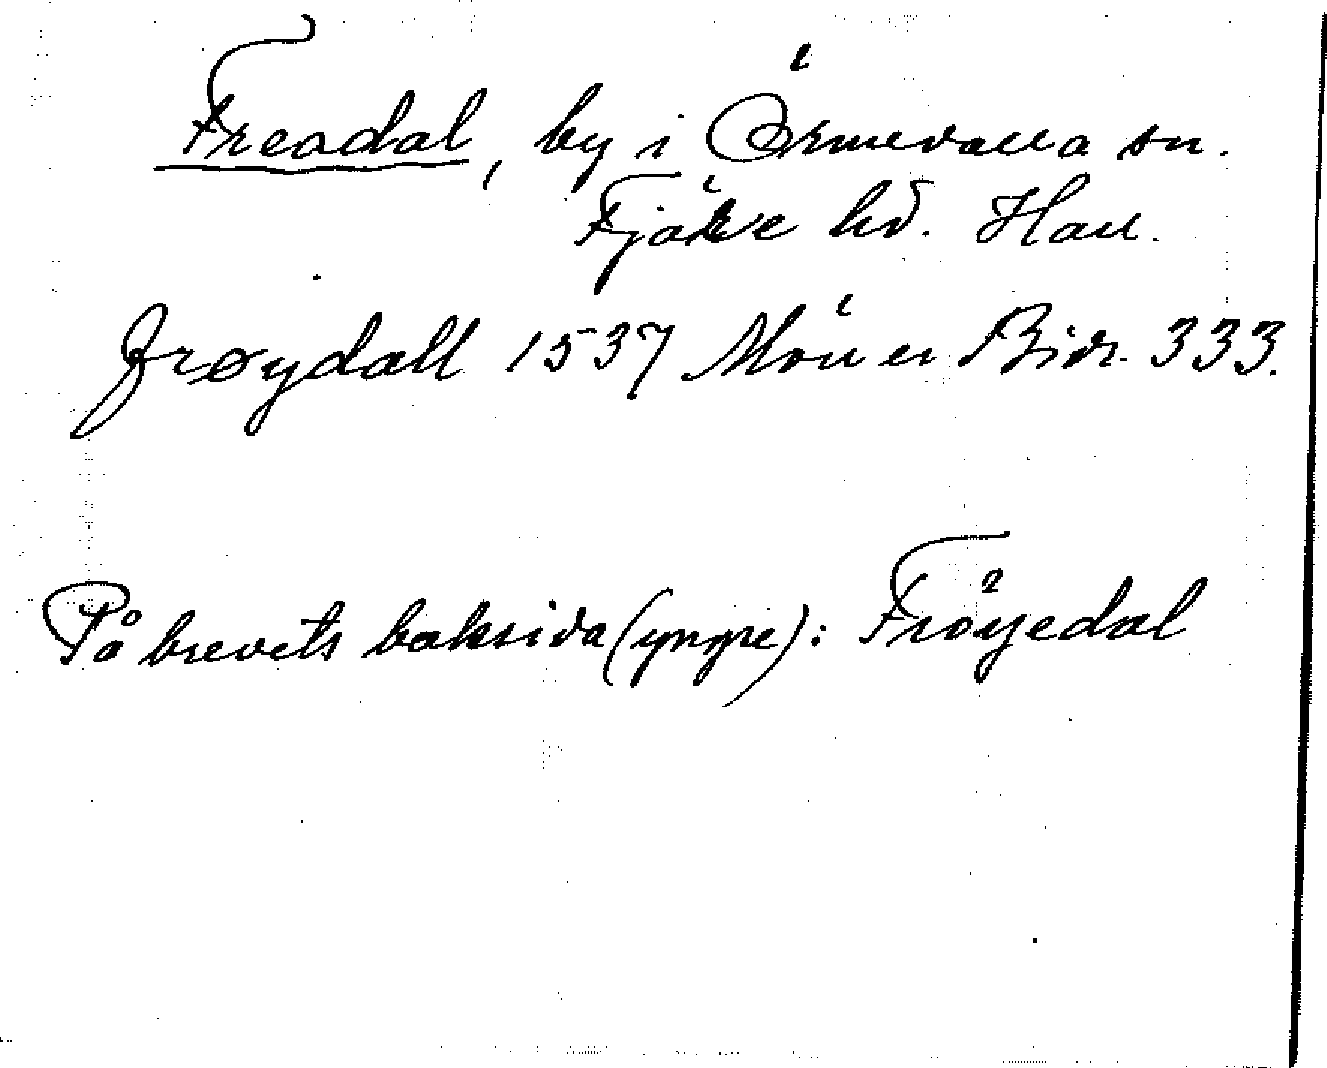 Freadal, by i Örmevalla sn.
Fjäre hd. Hall.
Frøydall 1537 Möller Bidr. 333.
På brevets baksida (yngre): Fröyedal